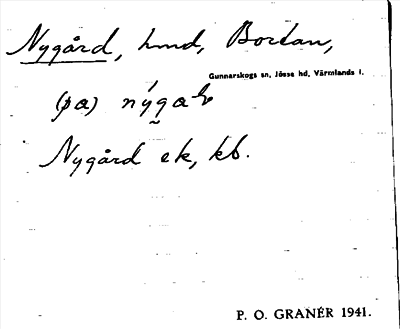 Nygård, hmd, Bortan,
Gunnarskogs sn, Jösse hd, Värmlands l.
(pa)
Nygård ek, kb.
P. O. GRANÉR 1941.